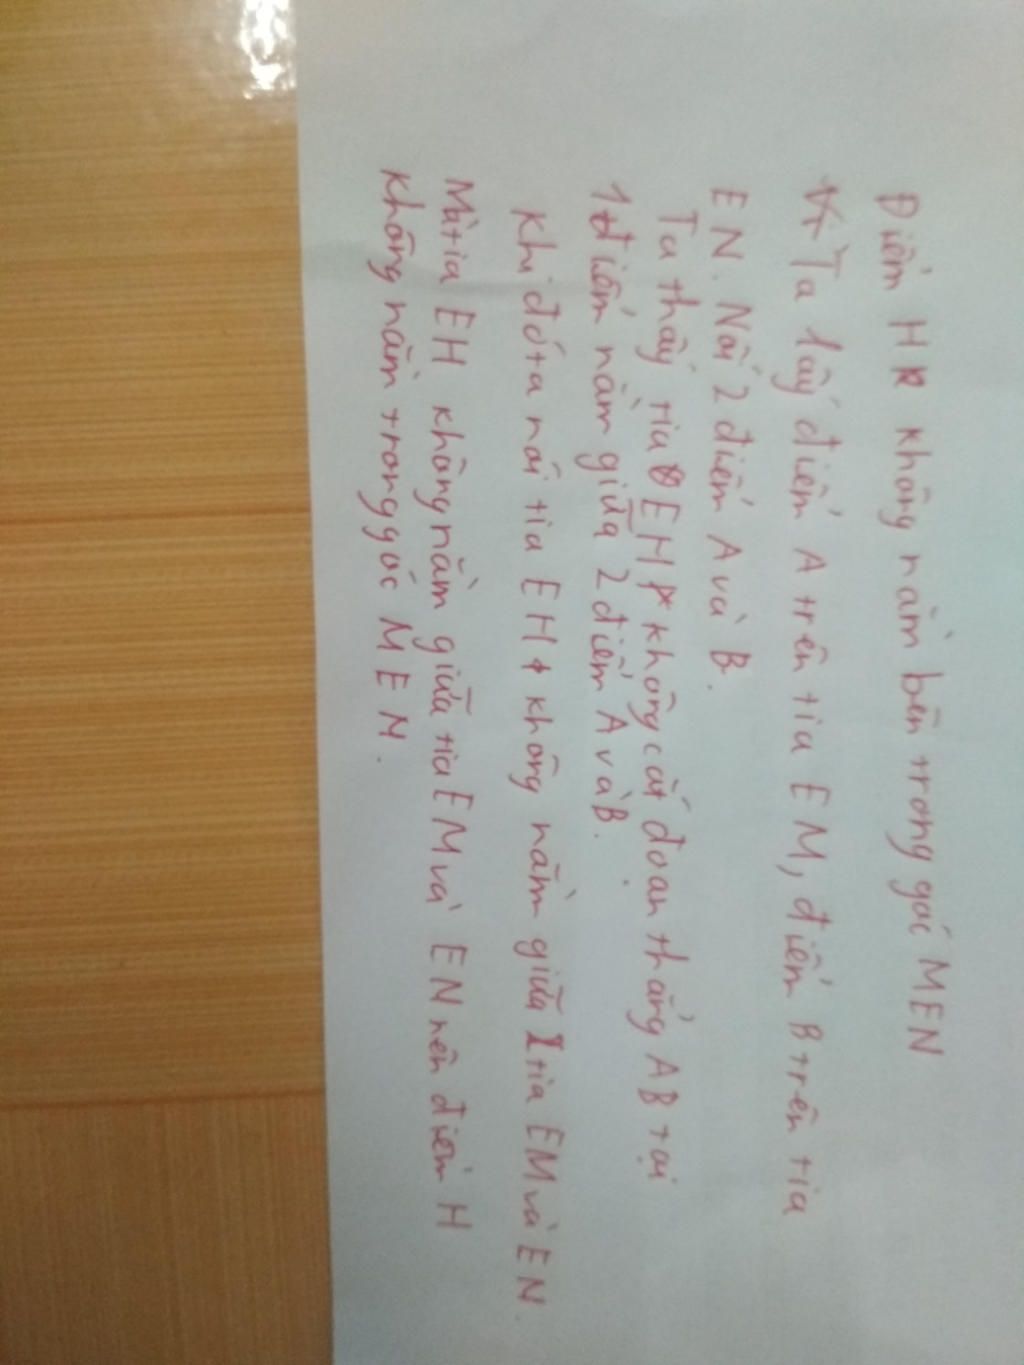 Điểm H không nằm bên trong góc MEN
Ta lấy điểm A trên tia EM, điểm B trên tia
EN. Nối 2 điểm A và B.
Ta thấy tia EH không cắt đoạn thẳng AB tại
1 điểm nằm giữa 2 điểm A và B.
Khi đó ta nói tia EH không nằm giữa tia EM và EN.
Mà tia EH không nằm giữa tia EM và EN nên điểm H
không nằm trong góc MEN.